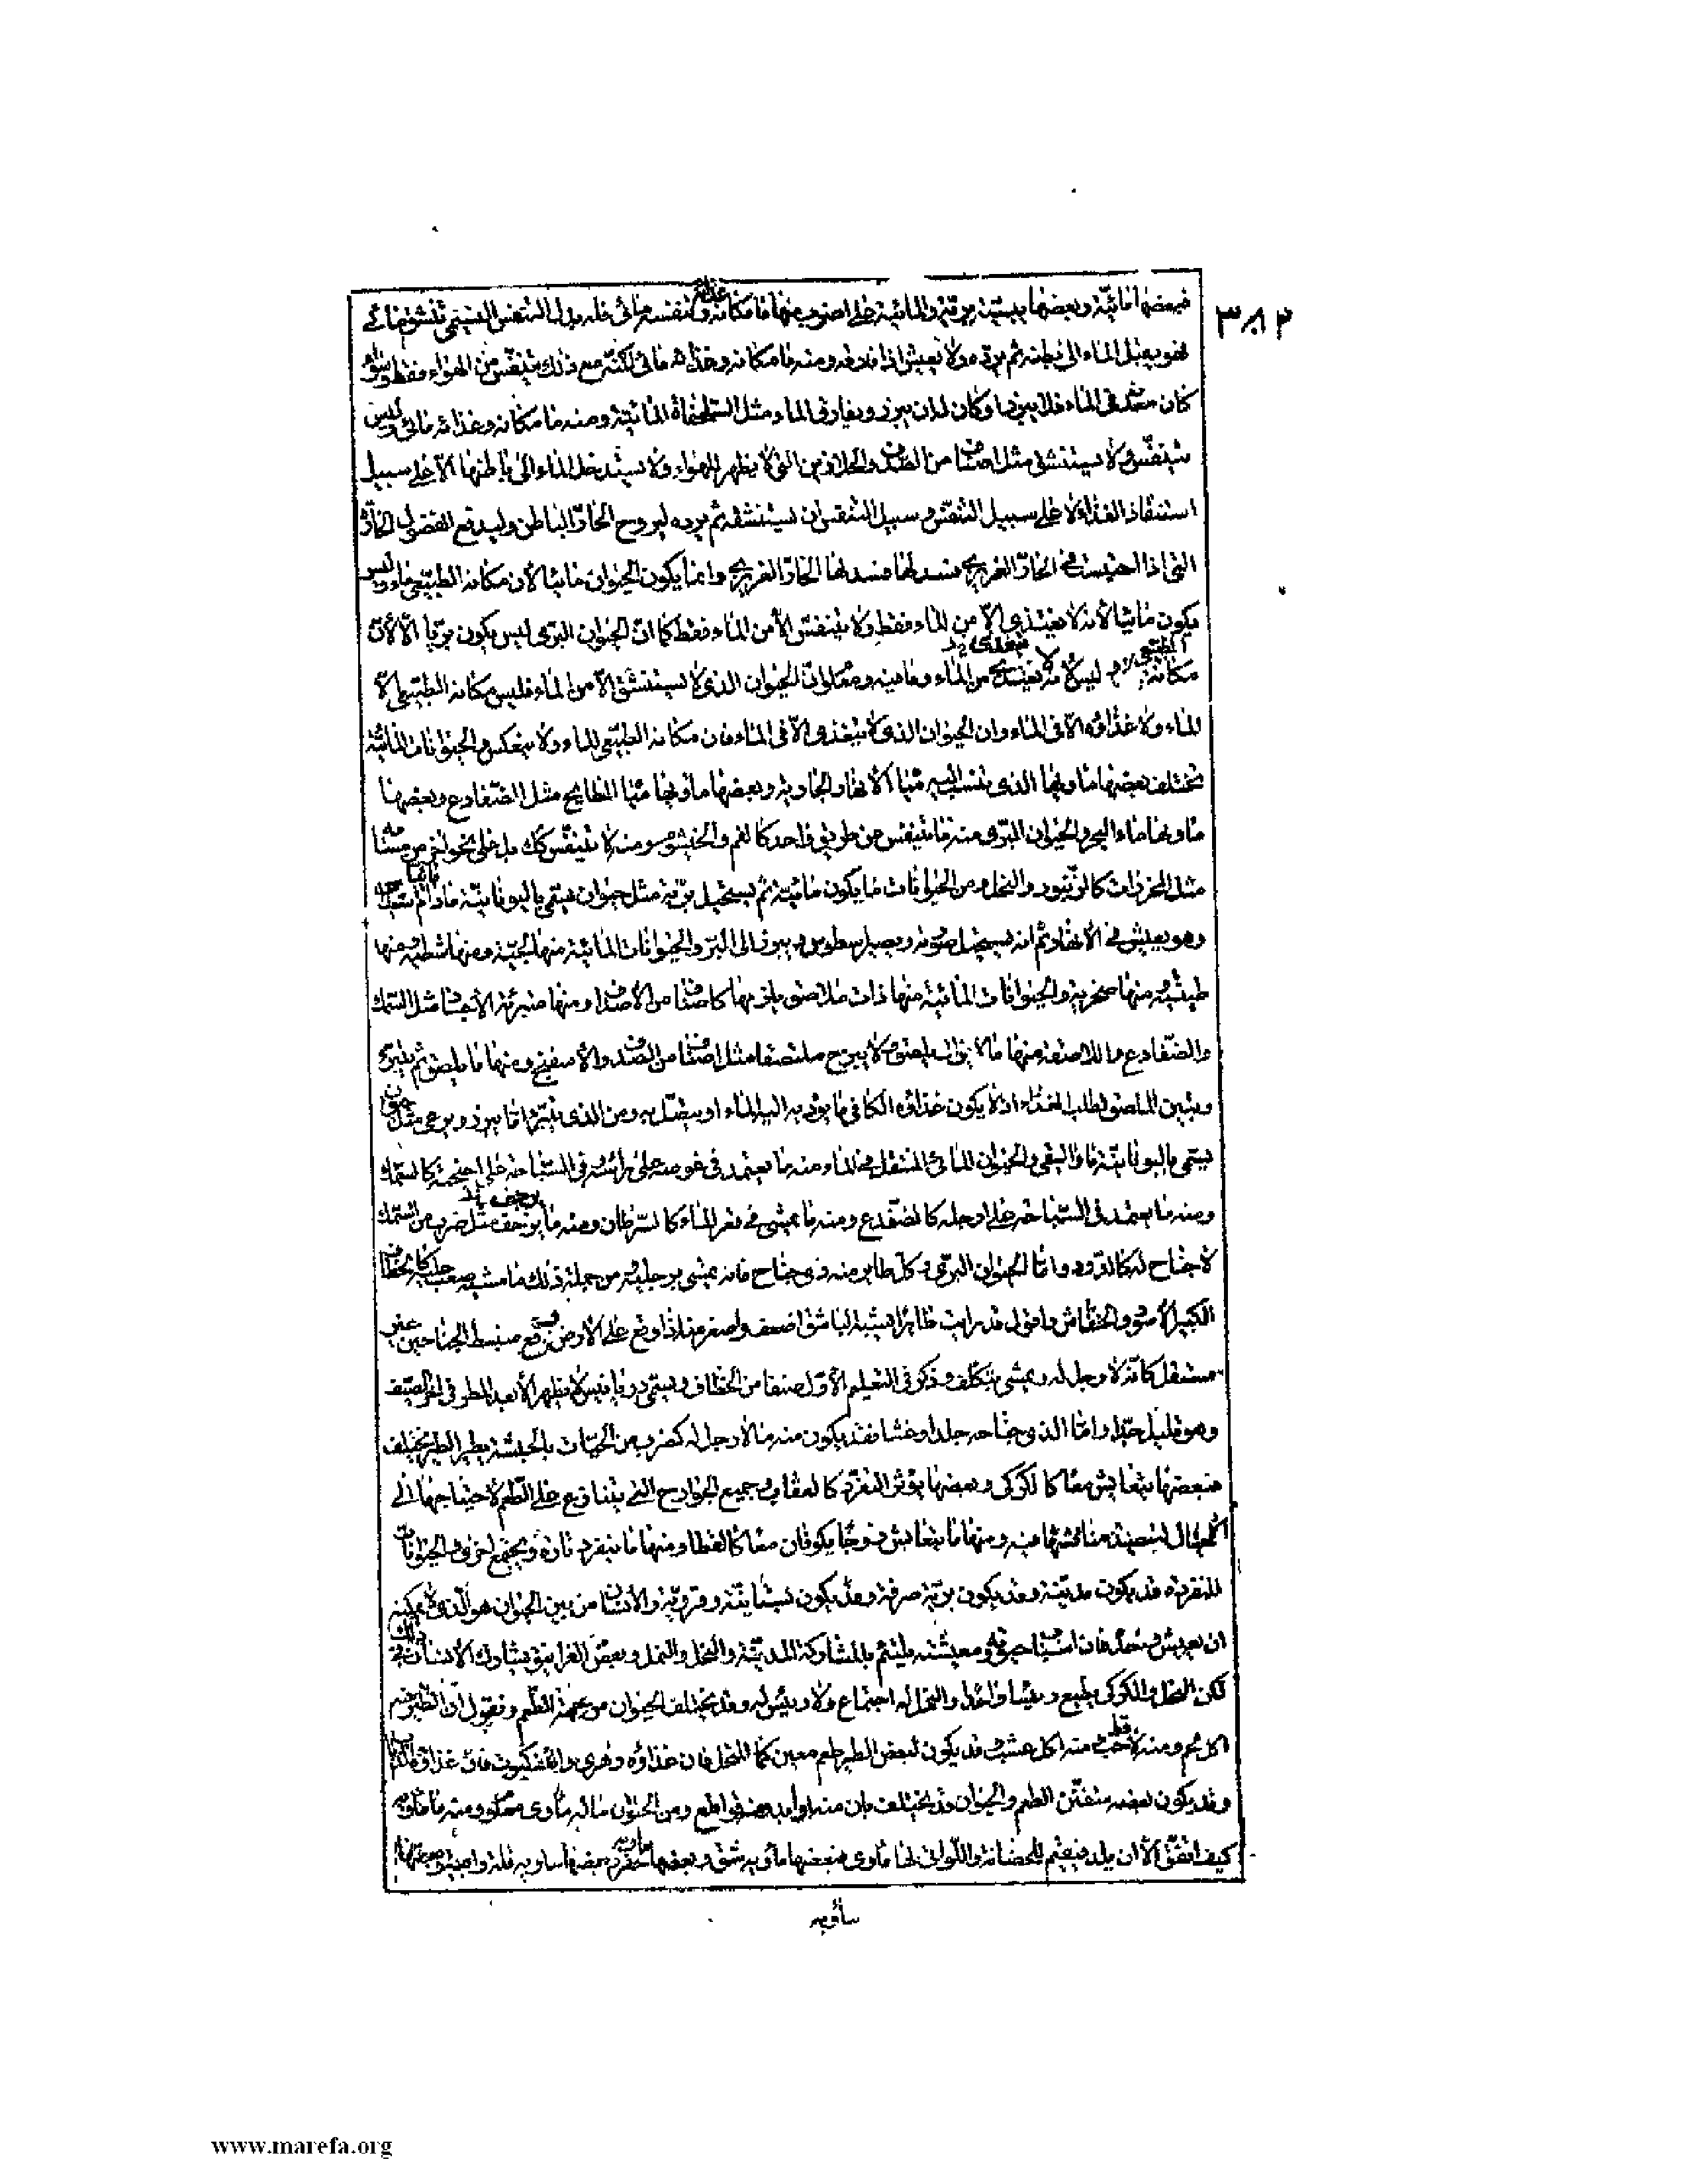 ٣٨٢
فبعضها مائية وبعضها يبسية برية والمائية على اصناف منها ما مكانه وغذائه وتنفسه مائى فله بدل التنفس النسيمى تنشق مائى
فهو يقبل الماء الى باطنه ثم يرده ولا يعيش اذا فارقه ومنه ما مكانه وغذائه مائى لكنه مع ذلك يتنفس من الهواء فقط سواء
كان معدنه فى الماء فلا يبرزها او كان له ان يبرز ويفارق الماء مثل السلحفاة المائية ومنه ما مكانه وغذائه مائى وليس
يتنفس ولا يستنشق مثل اصناف من الصدف والحلازين التى لا يظهر للهواء ولا يستدخل الماء الى باطنها الا على سبيل
استنفاذ الغذاء لا على سبيل التنفس وسبيل التنفس ان يستنشقه ثم يرده ليروح الحار الباطن وليدفع الفضول الحارة
التى اذا احتبست فى الحار الغريزى فسد لها الحار الغريزى وانما يكون الحيوان مائيا لان مكانه الطبيعى ماء وليس
يكون مائيا لانه لا يغتذى الا من الماء فقط ولا يتنفس الا من الماء فقط كما ان الحيوان البرى ليس يكون بريا الا لان
مكانه الطبيعى ليس لانه لا يغتذى من الماء وما فيه ومعلوم ان الحيوان الذى لا يستنشق الا من الماء فليس مكانه الطبيعى الا
الماء ولا غذاؤه الا فى الماء وان الحيوان الذى لا يغتذى الا فى الماء فان مكانه الطبيعى الماء ولا ينعكس والحيوانات المائية
تختلف بعضها مأواها الذى تنسب اليه مياه الانهار الجارية وبعضها مأواها مياه البطايح مثل الضفادع وبعضها
مأواها ماء البحر والحيوان البرى منه ما يتنفس من طريق واحد كالفم والخيشوم ومنه لا يتنفس كك بل على نحو اخر من مسامه
مثل المحززات كالزنبور والنحل ومن الحيوانات ما يكون مائية ثم يستحيل برية مثل حيوان يسمى باليونانية
وهو يعيش فى الانهار ثم انه يستحيل صورته ويصير اسطوس ويبرز الى البر والحيوانات المائية منها لجية ومنها شطية ومنها
طينية ومنها صخرية والحيوانات المائية منها ذات ملاصق يلزمها كاصناف من الاصداف ومنها متبرئة الابدان مثل السمك
والضفادع والملاصقة منها ما لا يزال يلصق ولا يبرح ملتصقا مثل اصناف من الصدف والاسفنج ومنها ما يلصق ثم يتبرأ
ويتبين الملصق لطلب الغذاء اذ لا يكون غذاؤه الكافى ما يؤديه اليه الماء او يتصل به ومن الذى يتبرأ ما يبرز ويرعى مثل حيوان
يسمى باليونانية والحيوان المائى المنتقل فى الماء منه ما يعتمد فى غوصه على رأسه وفى السباحة على اجنحته كالسمك
ومنه ما يعتمد فى السباحة على ارجله كالضفدع ومنه ما يمشى فى قعر الماء كالسرطان ومنه ما يزحف مثل ضرب من السمك
لا جناح له كالدود واما الحيوان البرى وكل طاير منه ذى جناح فانه يمشى برجليه ومن جملة ذلك ما مشيه صعب عليه كالخطاف
الكبير الاسود والخفاش واقول قد رايت طائرا يشبه الباشق اضعف واصغر منه اذا وقع على الارض وقع منبسط الجناحين غير
مستقل كانه لا رجل له ويمشى بتكلف وذكر فى التعليم الاول صنفا من الخطاف لا يظهر الا بعد المطر فى الصيف
وهو قليل جدا واما الذى جناحه جلد او غشاء فقد يكون منه ما لا رجل له كضرب من الحيات بالحبشة يطير والطير يختلف
فبعضها يتعايش معا كالكركى وبعضها يؤثر التفرد كالعقاب وجميع الجوارح التى يتنازع على الطعم لاحتياجها الى
الاحتيال لتصيد ومنافستها فيه ومنها ما يتعايش زوجا يكونان معا كالقطا ومنها ما ينفرد تارة ويجتمع اخرى والحيوانات
المنفردة قد يكون مدنية وقد يكون برية صرفة وقد يكون بستانية وقروية والانسان من بين الحيوان هو الذى لا يمكنه
ان يعيش وحده فان اسباب حياته ومعيشته يلتئم بالمشاركة المدنية والنحل والنمل وبعض الغرانيق يشارك الانسان فى ذلك
لكن النحل والكركى يطيع رئيسا واحدا والنمل له اجتماع ولا رئيس له وقد يختلف الحيوان من جهة الطعم ونقول ان الطير منه
اكل لحم ومنه لاقط حب ومنه اكل عشب وقد يكون لبعض الطير طعم معين كما للنحل فان غذاؤه زهرى والعنكبوت فان غذاؤه الذباب
وقد يكون بعضه متفنن الطعم والحيوان قد يختلف بان منه اوابد ومنه قواطع ومن الحيوان ما له مأوى معلوم ومنه ما مأواه
كيف اتفق الا ان يلد فيقيم للحضانة واللواتى لها مأوى فبعضها مأويه شق وبعضها مأويه حفر وبعضها مأويه قلة وابنية وبعضها
مأويه
www.marefa.org